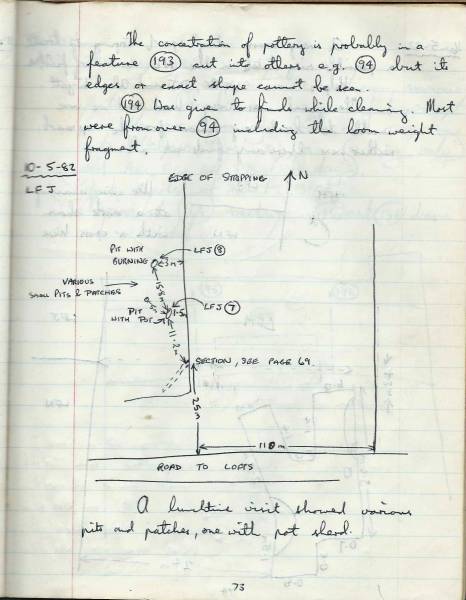 The concentration of pottery is probably in a
feature (193) cut into others e.g. (94) but its
edges or exact shape cannot be seen.
(194) was given to finds while cleaning. Most
were from over (94) including the loom weight
fragment.
10-5-82
LFJ
EDGE OF STRIPPING
N
PIT WITH
BURNING
LFJ (8)
3m
VARIOUS
SMALL PITS & PATCHES
15.8m
LFJ (7)
1.5m
PIT
WITH POT
11.2m
SECTION, SEE PAGE 69.
25m
110m
ROAD TO LOFTS
A lunchtime visit showed various
pits and patches, one with pot sherd.
73